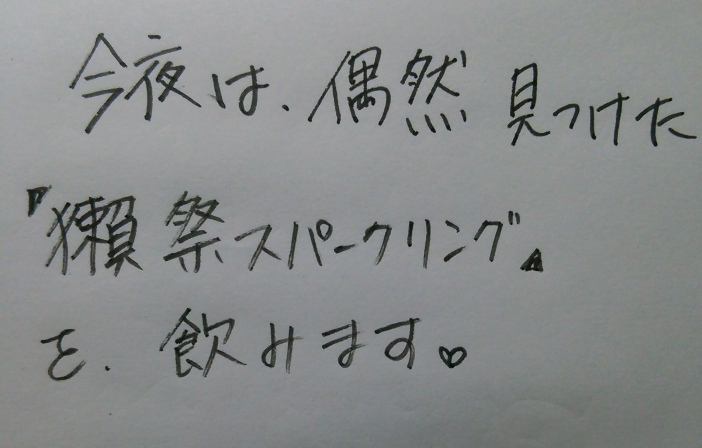 今夜は、偶然見つけた
『獺祭スパークリング』
を、飲みます♡